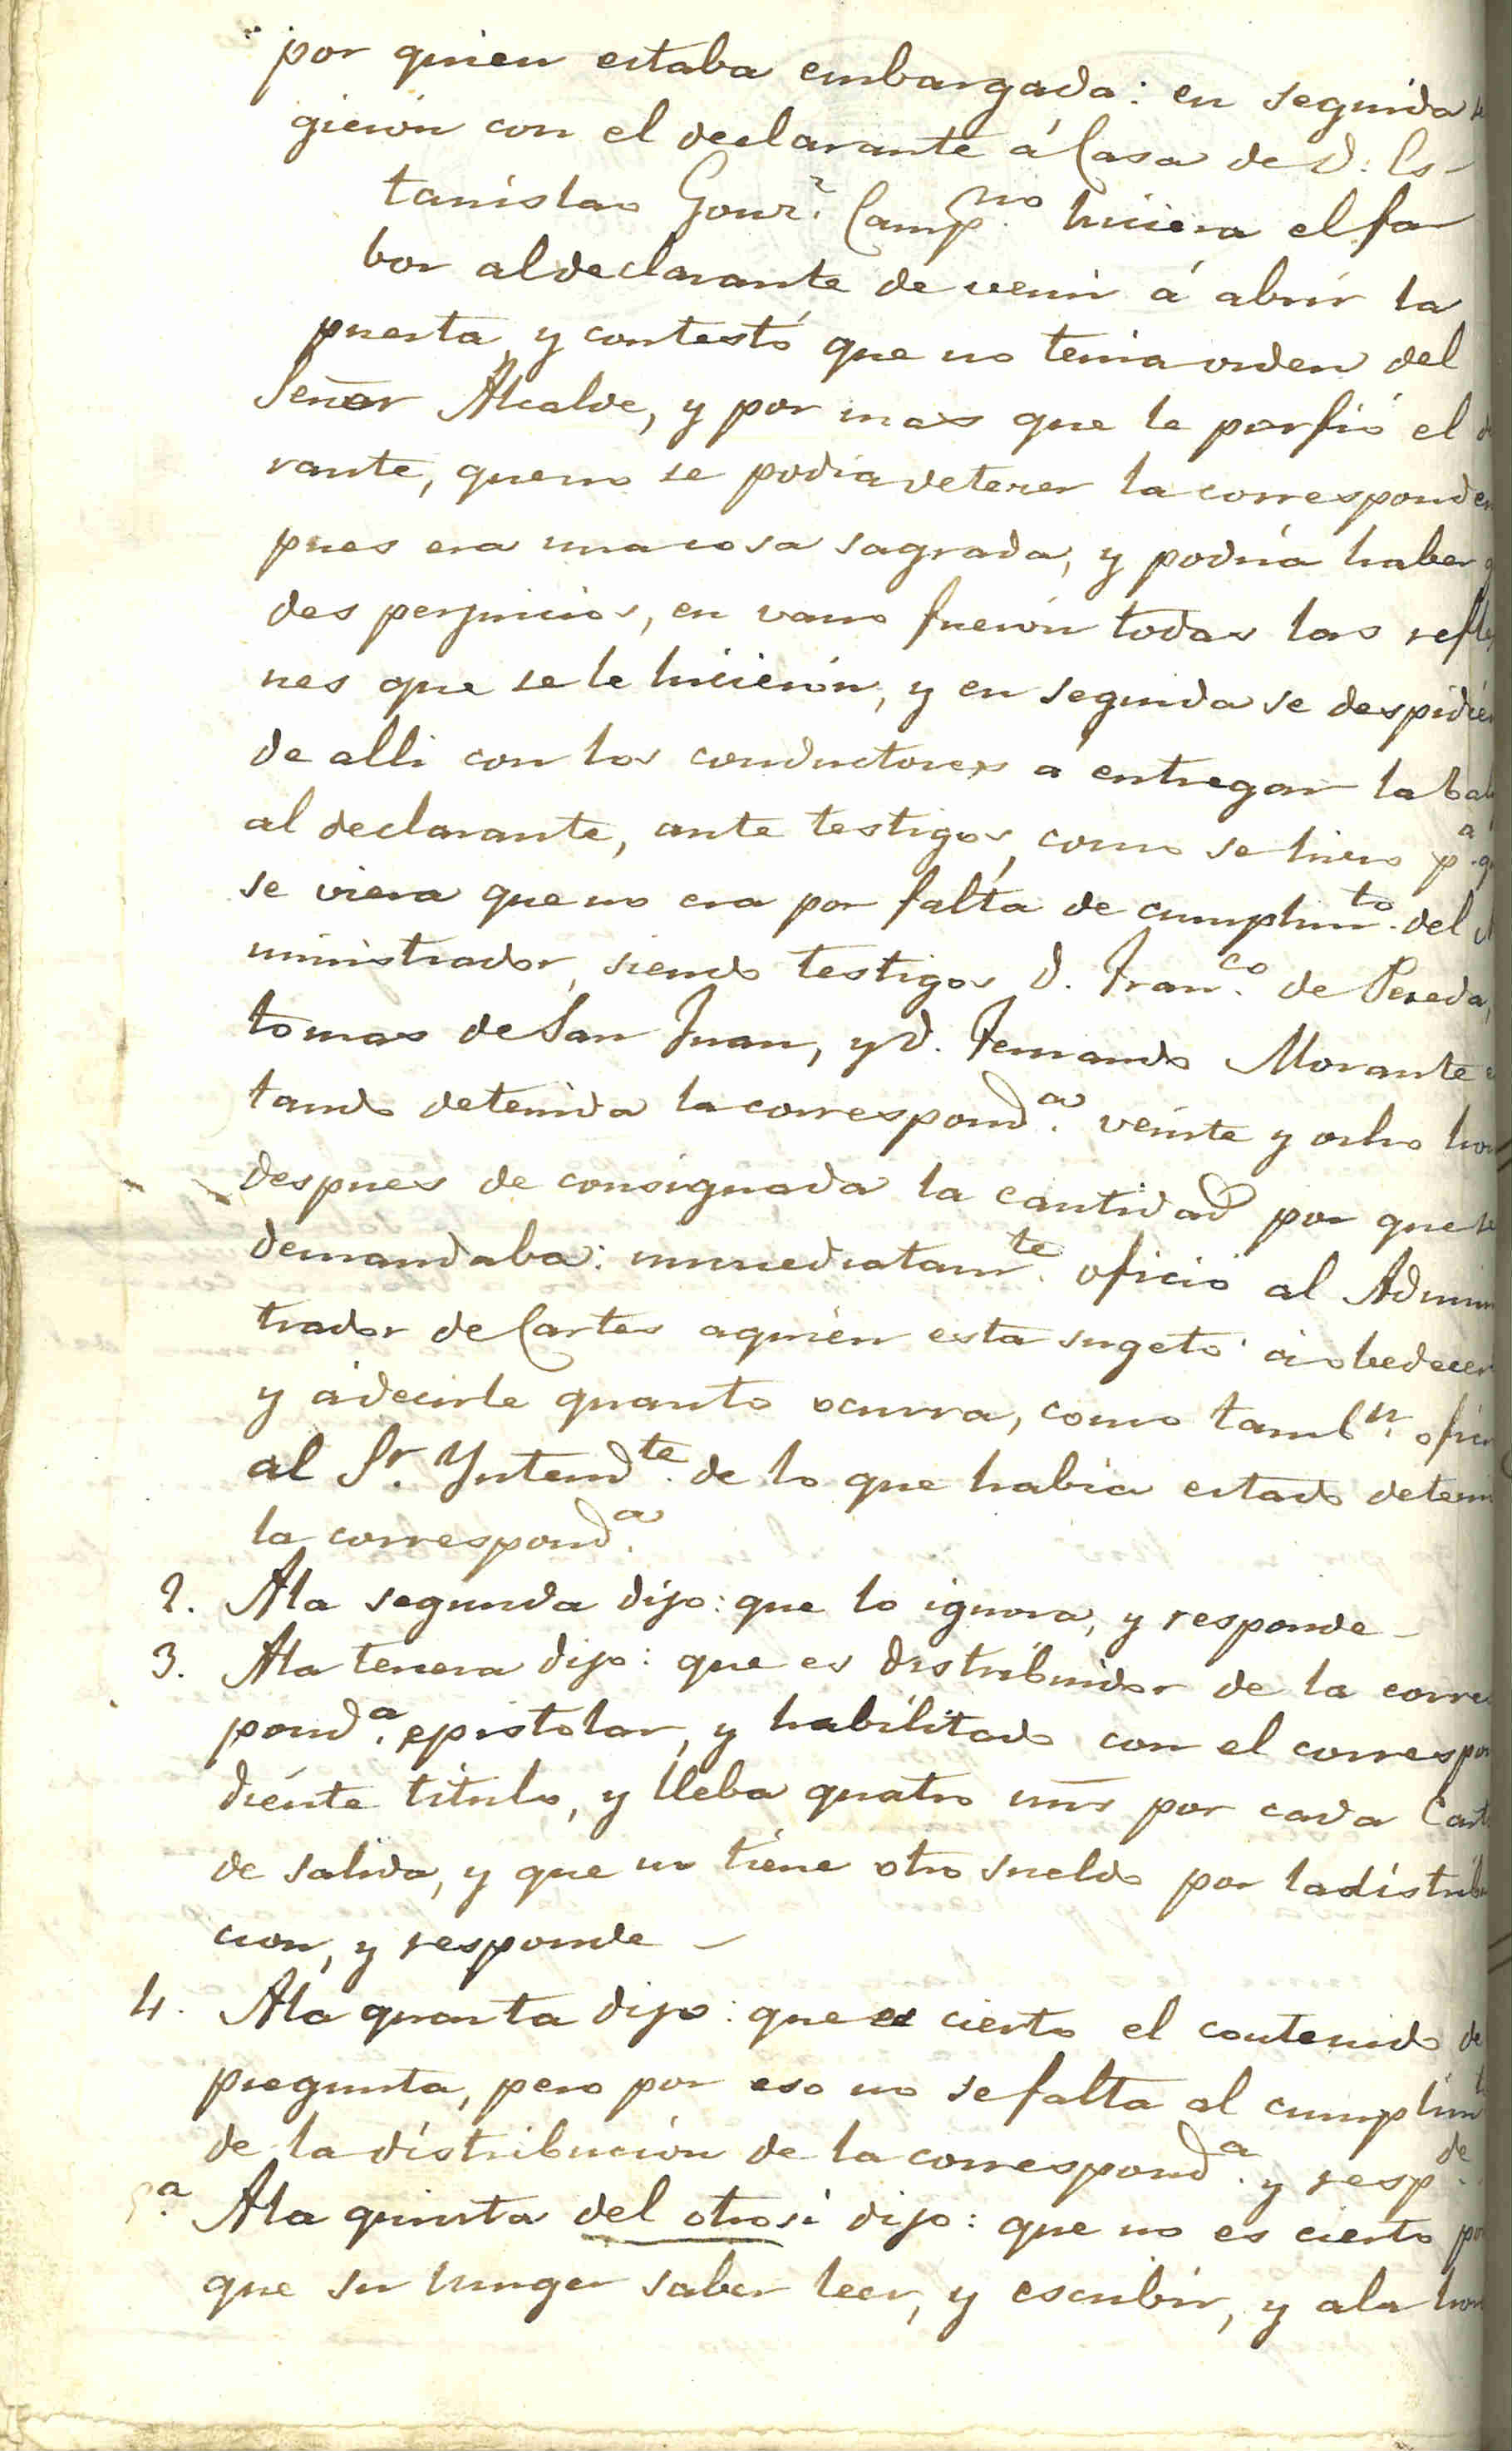 por quien estaba embargada: en seguida
gierón con el declarante á Casa de D: Es-
tanislao Gonz.² Camp.no hiciera el fa
bor al declarante de venir á abrir la
puerta, y contestó que no tenia orden del
Señor Alcalde, y por mas que le porfió el
rante, que no se podia detener la corresponden
pues era una cosa sagrada, y podria haber
des perjuicios, en vano fuerón todas las refle
nes que se le hicierón, y en seguida se despidier
de alli con los conductores a entregar la bali
al declarante, ante testigos, como se hizo p.a q
se viera que no era por falta de cumplim.to del
ministrador, siendo testigos D. Fran.co de Pereda,
tomas de San Juan, y D. Fernando Morante
tando detenida la correspond.a veinte y ocho hor
despues de consignada la cantidad por que se
demandaba: immediatam.te oficio al Admin
trador de Cartes aquien esta sugeto á obedecer
y á decirle quanto ocurra, como tamb.n ofici
al Sr. Yntend.te de lo que habia estado deteni
la correspond.a
2. Ala segunda dijo: que lo ignora, y responde-
3. Ala tercera dijo: que es distribuidor de la corre
pond.a epistolar, y habilitado con el correspon
diente titulo, y lleba quatro mrs por cada Cart
de salida, y que no tiene otro sueldo por la distribu
cion, y responde -
4. Ala quarta dijo: que es cierto el contenido de
pregunta, pero por eso no se falta al cumplim.to
de la distribución de la correspond.a y resp.de
5.a Ala quinta del otrosi dijo: que no es cierto por
que su muger saber leer, y escribir, y ala hor